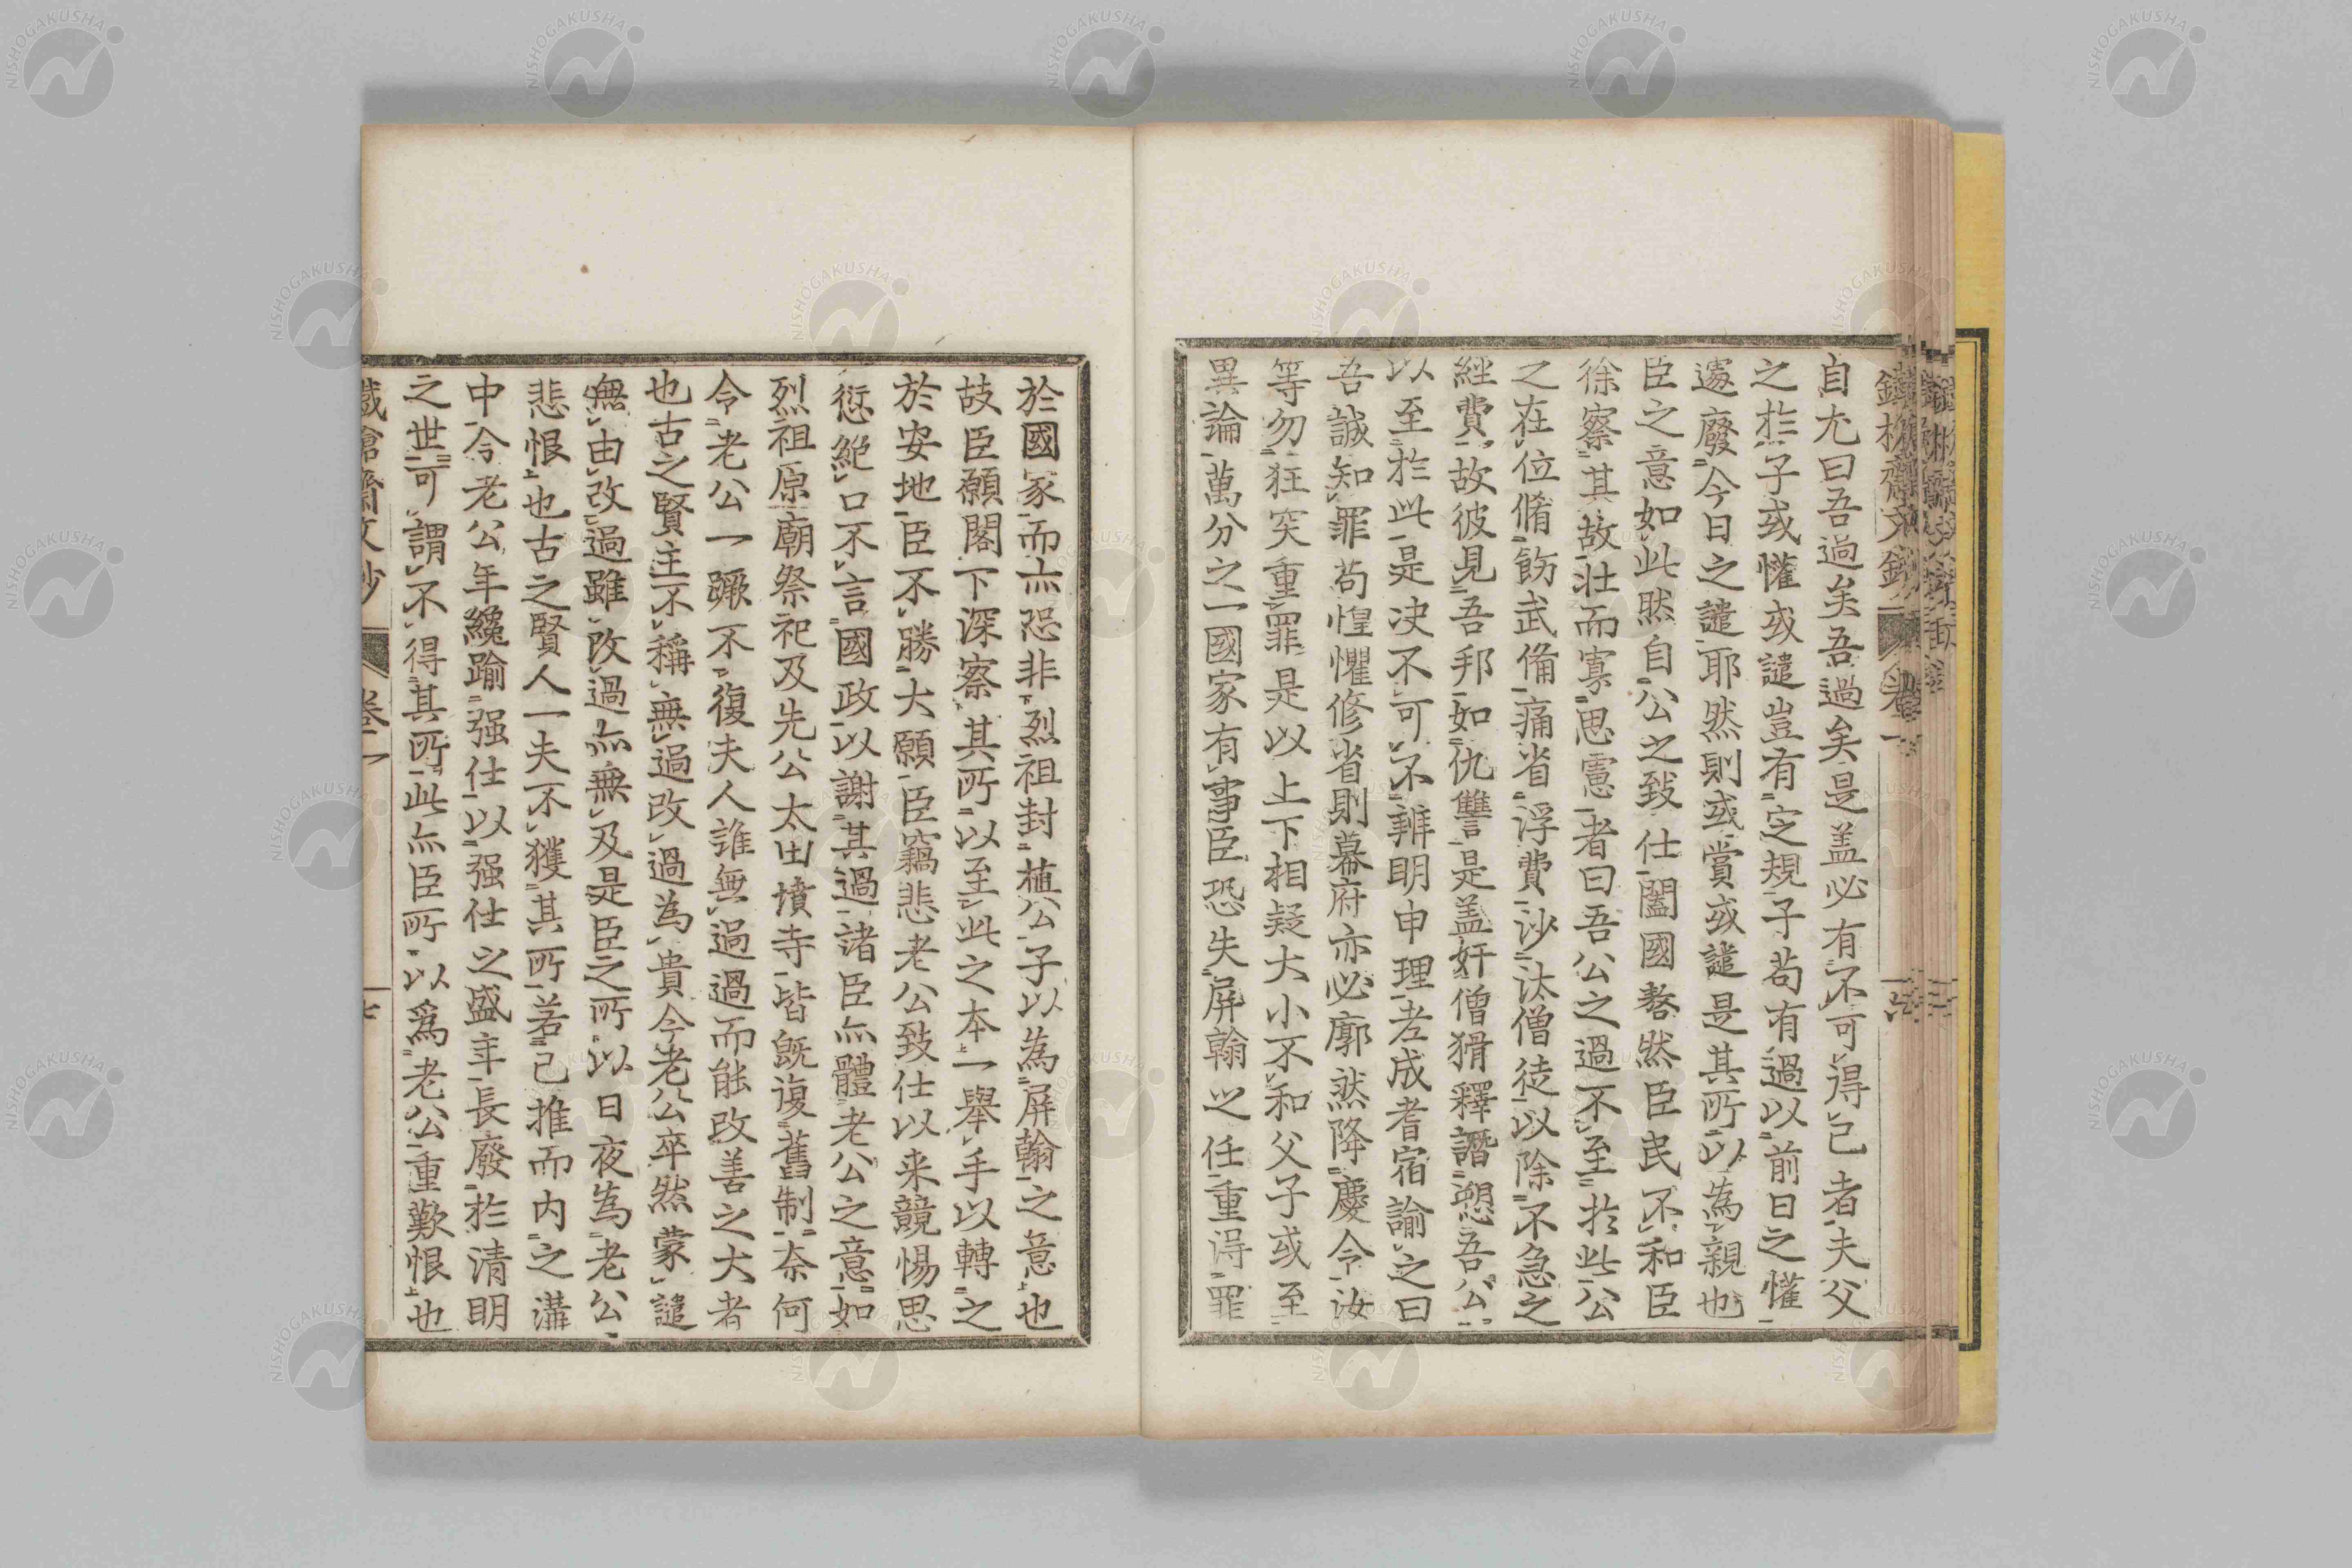 自尤曰吾過矣吾過矣是盖必有不可得已者夫父
之於子或懽或譴豈有定規子苟有過以前日之懽
遽廢今日之譴耶然則或賞或譴是其所以為親也
臣之意如此然自公之致仕闔國嗸然臣民不和臣
徐察其故壮而寡思慮者曰吾公之過不至於此公
之在位脩飭武備痛省浮費沙汰僧徒以除不急之
經費故彼見吾邦如仇讐是盖奸僧猾釋譖愬吾公
以至於此是决不可不辨明申理老成耆宿諭之曰
吾誠知罪苟惶懼修省則幕府亦必廓然降慶今汝
等勿狂突重罪是以上下相疑大小不和父子或至
異論萬分之一國家有事臣恐失屏翰之任重得罪
於國家而亦恐非烈祖封植公子以為屏翰之意也
故臣願閣下深察其所以至此之本一舉手以轉之
於安地臣不勝大願臣竊悲老公致仕以来競惕思
愆絶口不言國政以謝其過諸臣亦體老公之意如
烈祖原廟祭祀及先公太田墳寺皆既復舊制奈何
令老公一蹶不復夫人誰無過過而能改善之大者
也古之賢主不稱無過改過為貴今老公卒然蒙譴
無由改過雖改過亦無及是臣之所以日夜為老公
悲恨也古之賢人一夫不獲其所若己推而内之溝
中今老公年纔踰强仕以强仕之盛年長廢於清明
之世可謂不得其所此亦臣所以爲老公重歎恨也
鐵槍齋文鈔
卷一
七
NISHOGAKUSHA